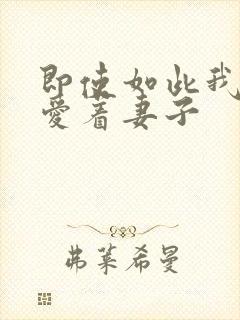 即使如此我
爱着妻子
弗莱希曼